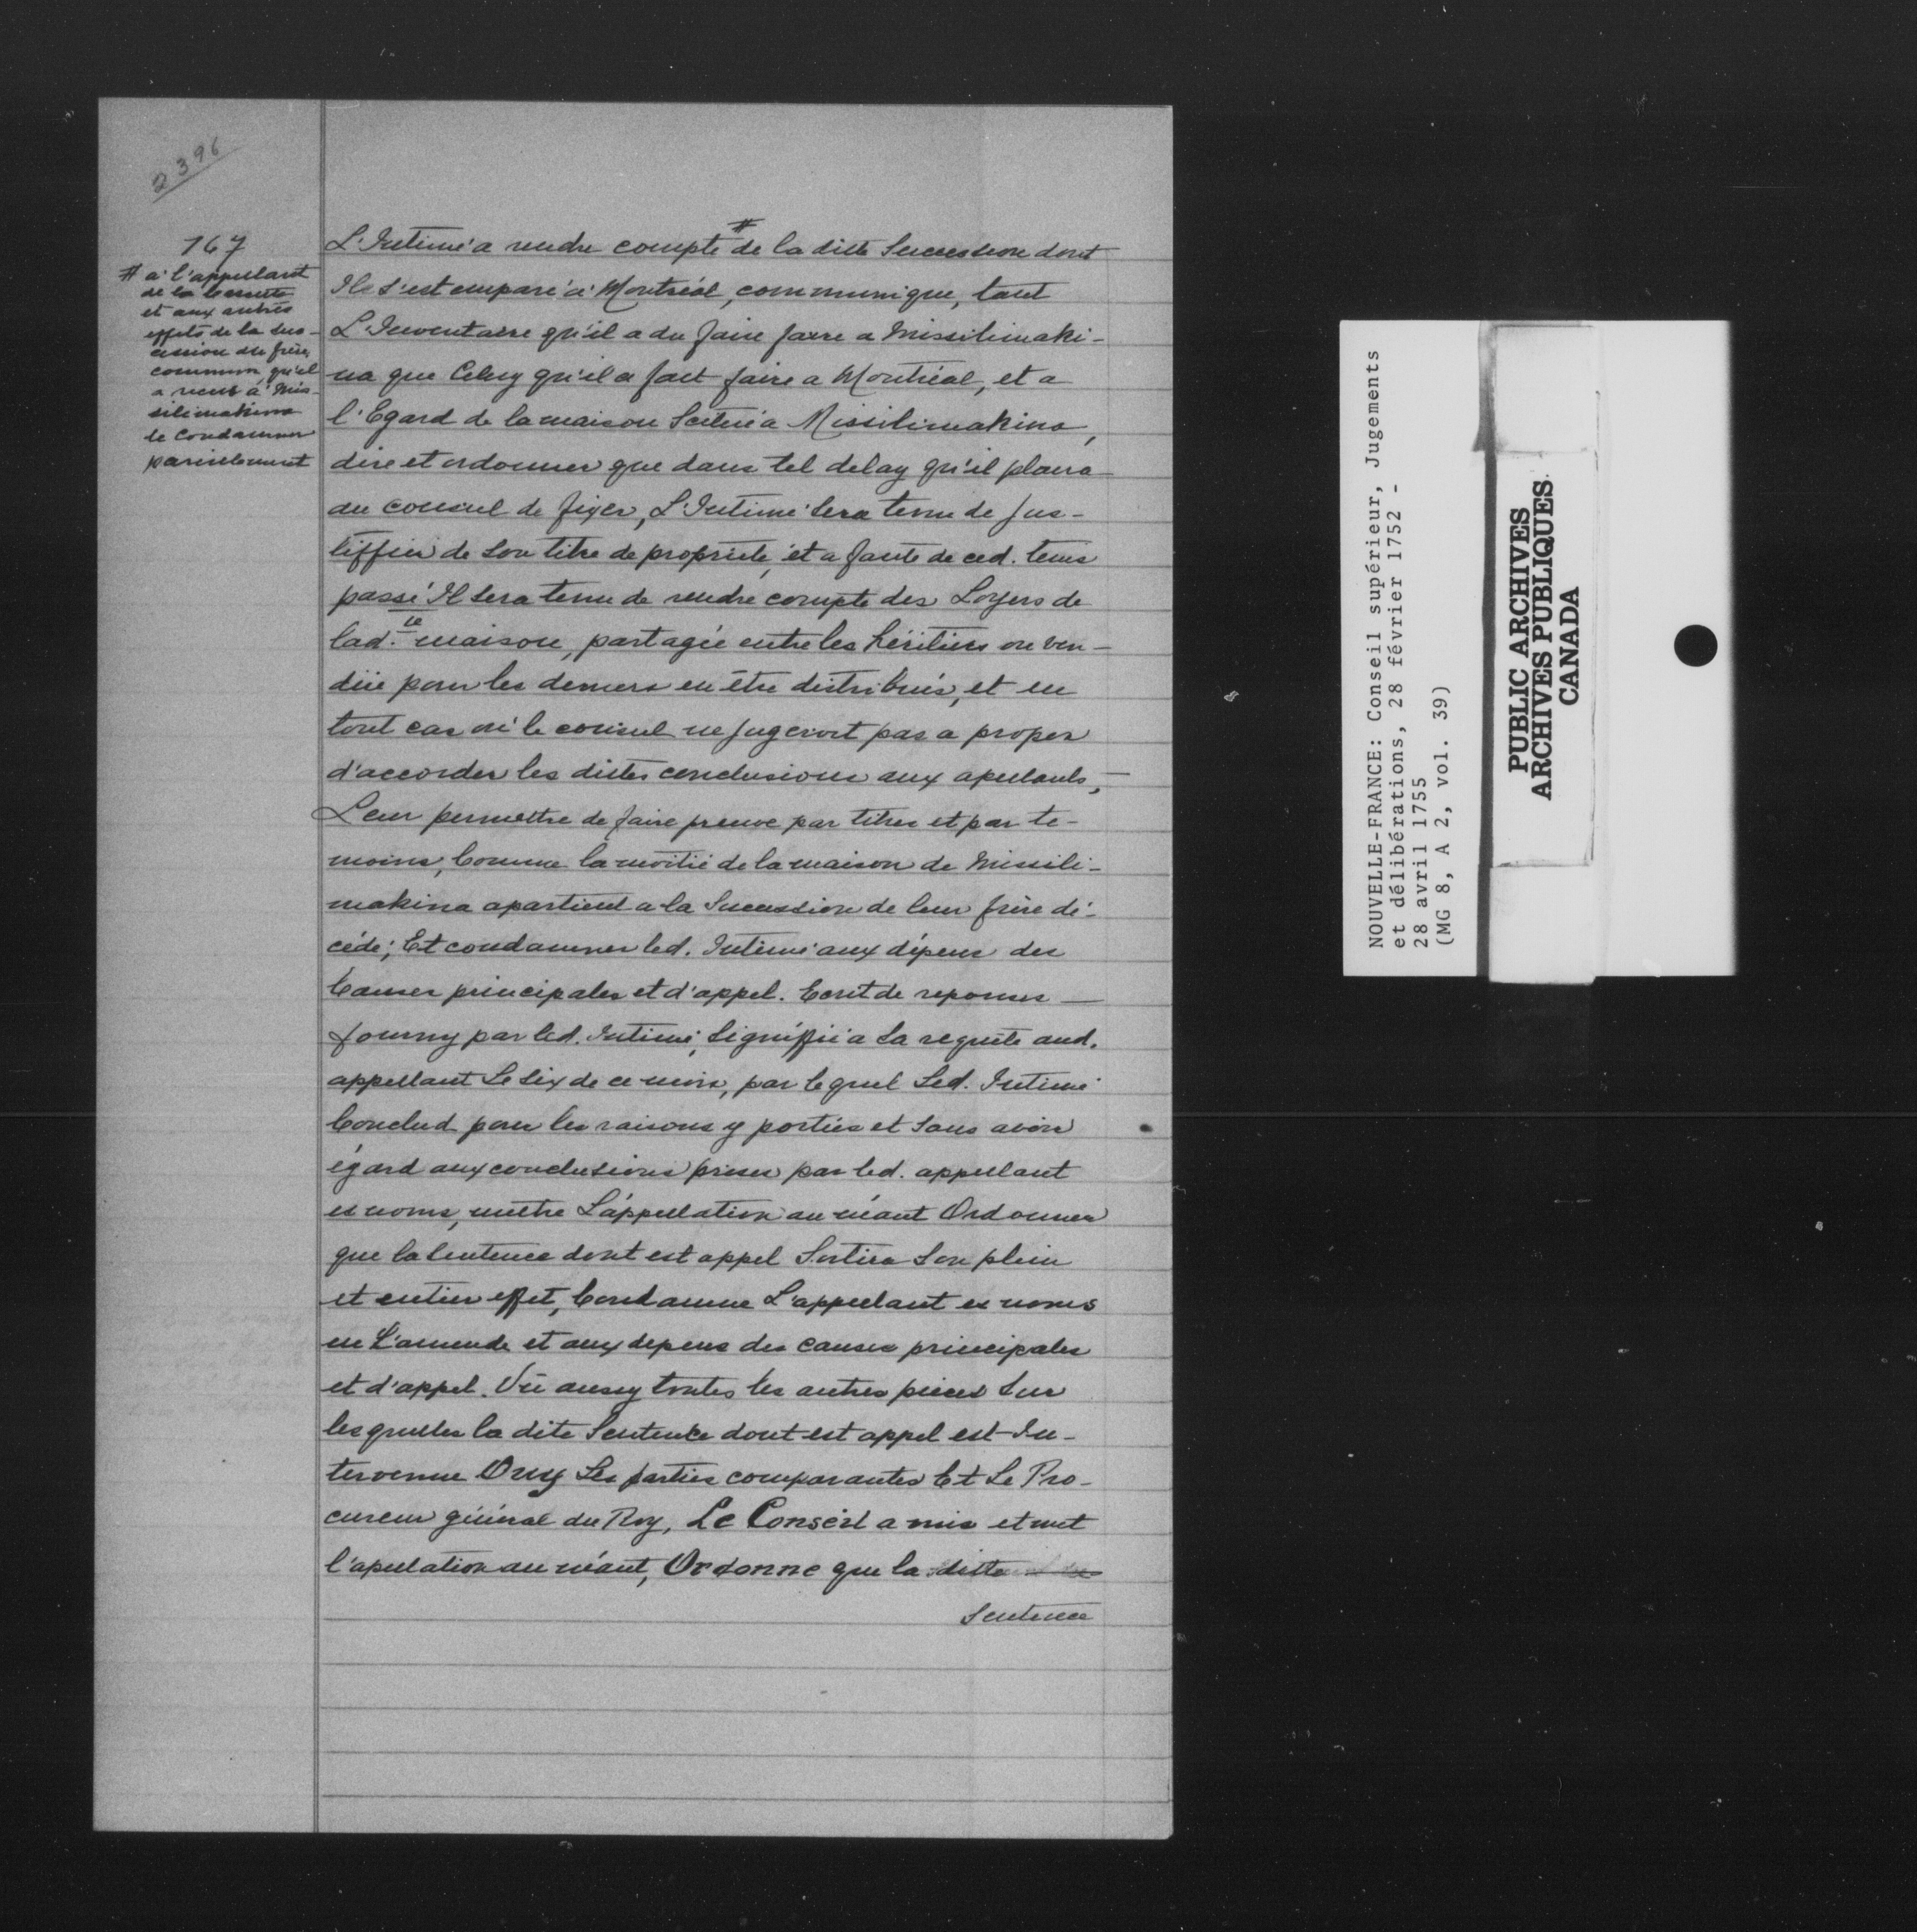 2396
167
# à l'appellant
de la
et aux autres
effets de la suc-
cession du frère
commun, qu'il
a à Mis-
silimakina
le condamner
pareillement
L'Intimé a rendre compte # de la ditte Succession dont
Il s'est emparé à Montréal, communique, tant
L'Inventaire qu'il a du faire faire a Missilimaki-
na que Celuy qu'il a fait faire a Montréal, et a
l'Egard de la maison Scitué a Missilimakina,
dire et ordonner que dans tel delay qu'il plaira
au conseil de fixer, L'Intimé sera tenu de Jus-
tiffier de son titre de propriété, et a faute de ce d. tems
passé Il sera tenu de rendre compte des Loyers de
lad.te maison, partagée entre les héritiers ou ven-
düe pour les deniers en être distribués, et en
tout cas où le conseil ne Jugeroit pas a propos
d'accorder les dittes conclusions aux apellants,
Leur permettre de faire preuve par titres et par te-
moins, Comme la moitié de la maison de Missili-
makina apartient a la Succession de leur frère dé-
cédé; Et condamner led. Intimé aux dépens des
Causes principales et d'appel. Ecrit de reponses
fourny par led. Intimé, Signiffié a Sa requête aud.
appellant Le Six de ce mois, par lequel Led. Intimé
Conclud pour les raisons y portées et Sans avoir
égard aux conclusions prises par led. appellant
es noms, mettre L'appellation au néant Ordonner
que la Sentence dont est appel Sortira Son plein
et entier effet, Condamne L'appellant es noms
en L'amende et aux depens des causes principales
et d'appel. Vû aussy toutes les autres pieces Sur
lesquelles la dite Sentence dont est appel est In-
tervenue Ouy Les parties comparantes Et Le Pro-
cureur général du Roy, Le Conseil a mis et met
l'apellation au néant, Ordonne que la ditte
Sentence
NOUVELLE-FRANCE: Conseil supérieur, Jugements
et délibérations, 28 février 1752 -
28 avril 1755
(MG 8, A 2, vol. 39)
PUBLIC ARCHIVES
ARCHIVES PUBLIQUES
CANADA